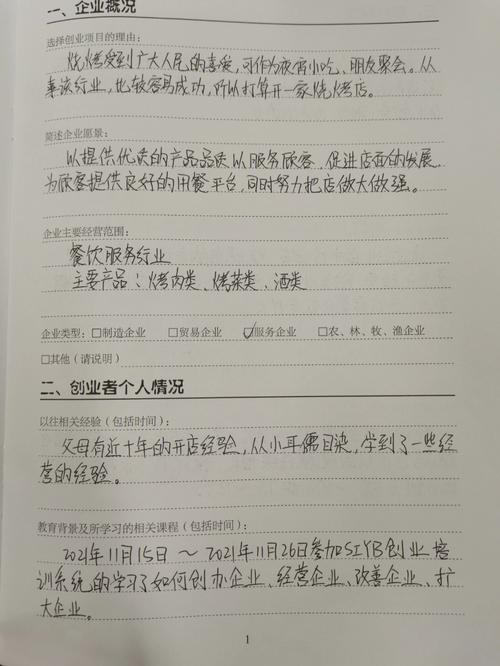 一、企业概况
选择创业项目的理由：
烧烤受到广大人民的喜爱，可作为夜宵小吃、朋友聚会。从
事该行业，也较容易成功，所以打算开一家烧烤店。
简述企业愿景：
以提供优质的产品品质以服务顾客，促进店面的发展
为顾客提供良好的用餐平台，同时努力把店做大做强。
企业主要经营范围：
餐饮服务行业
主要产品：烤肉类、烤菜类、酒类
企业类型：□制造企业 □贸易企业 ☑服务企业 □农、林、牧、渔企业
□其他（请说明）
二、创业者个人情况
以往相关经验（包括时间）：
父母有近十年的开店经验，从小耳儒目染，学到了一些经
营的经验。
教育背景及所学习的相关课程（包括时间）：
2021年11月15日～2021年11月26日参加SIYB创业培
训系统的学习了如何创办企业、经营企业、改善企业、扩
大企业。
1